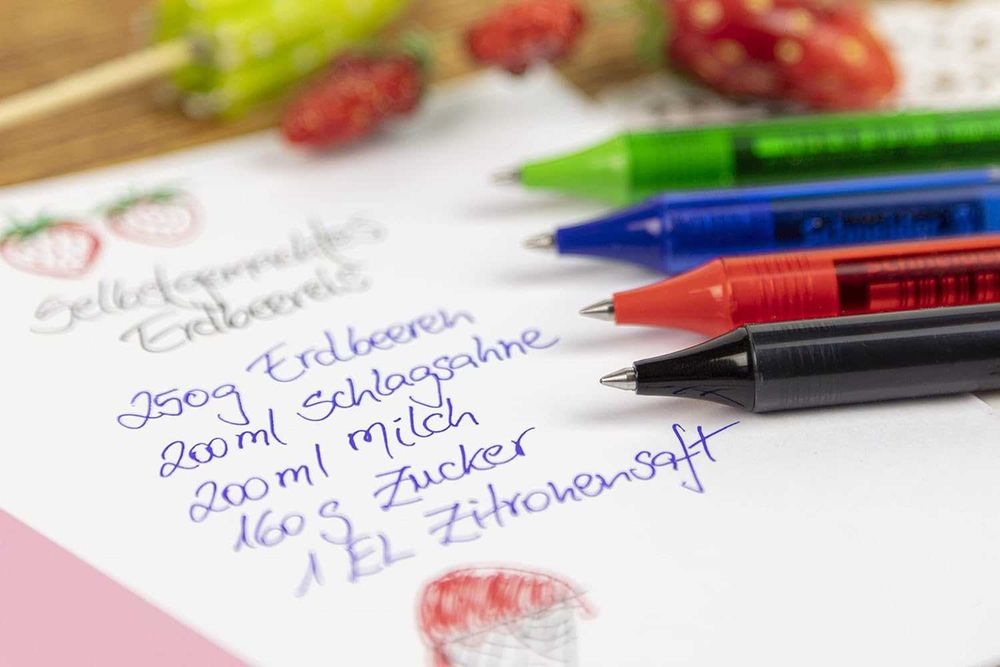 Selbstgemachtes
Erdbeereis
250g Erdbeeren
200ml Schlagsahne
200ml Milch
160g Zucker
1 EL Zitronensaft